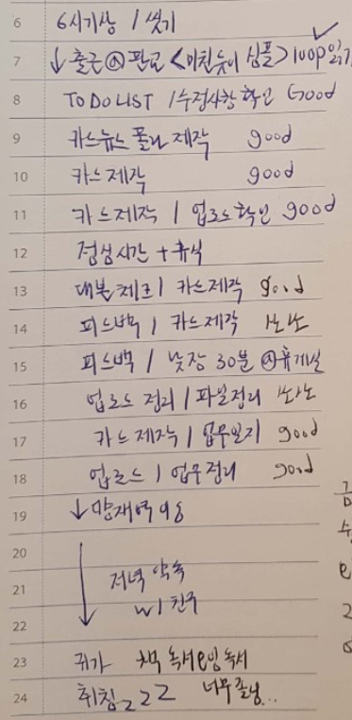 6 6시기상 / 씻기
7 ↓ 출근 @ 판교 <미친듯이 심플> 100p 읽기
8 TO DO LIST / 수정사항 확인 Good
9 카드뉴스 폴라 제작 good
10 카드제작 good
11 카드제작 / 업로드확인 good
12 점심시간 + 휴식
13 대본체크 / 카드제작 good
14 피드백 / 카드제작 노노
15 피드백 / 낮잠 30분 @휴게실
16 업로드 정리 / 파일정리 노노
17 카드제작 / 업무일지 good
18 업로드 / 업무정리 good
19 ↓ 양재역 이동
20
21 저녁 약속
22 w/ 친구
23 귀가 책 독서 e빙 독서
24 취침 zzz 너무 졸님..